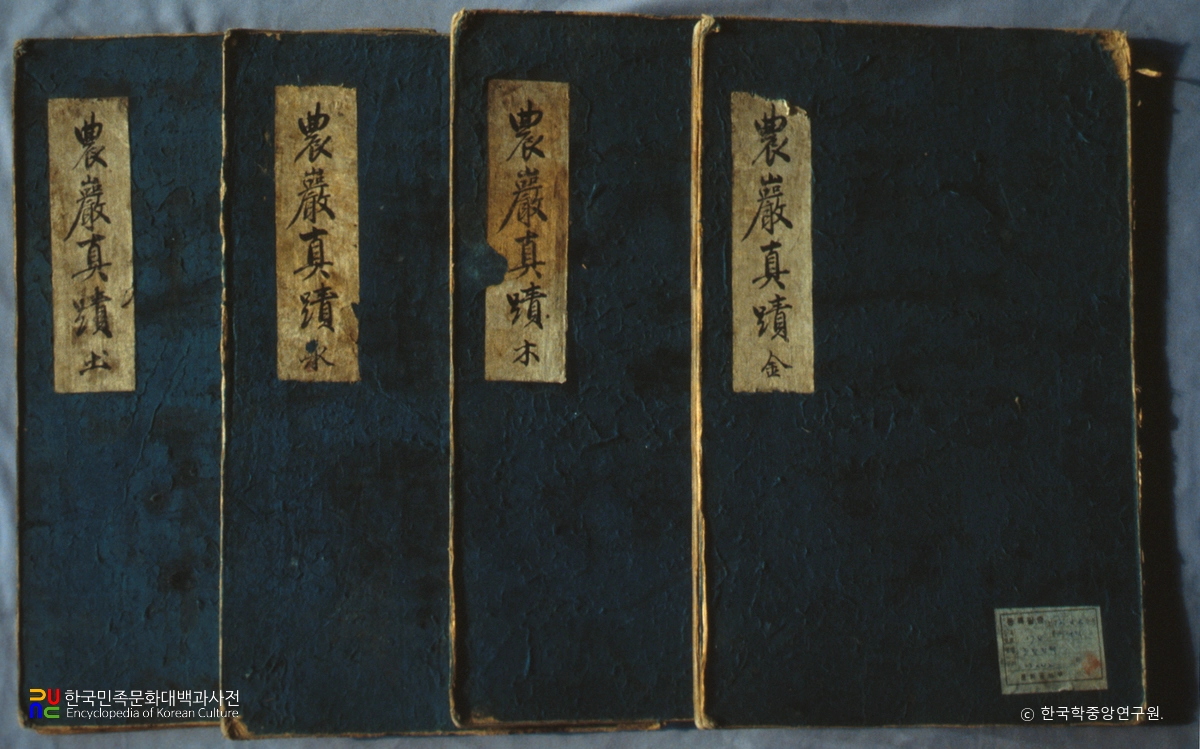 農巖真蹟 金
農巖真蹟 木
農巖真蹟 水
農巖真蹟 土
한국민족문화대백과사전
Encyclopedia of Korean Culture
© 한국학중앙연구원.